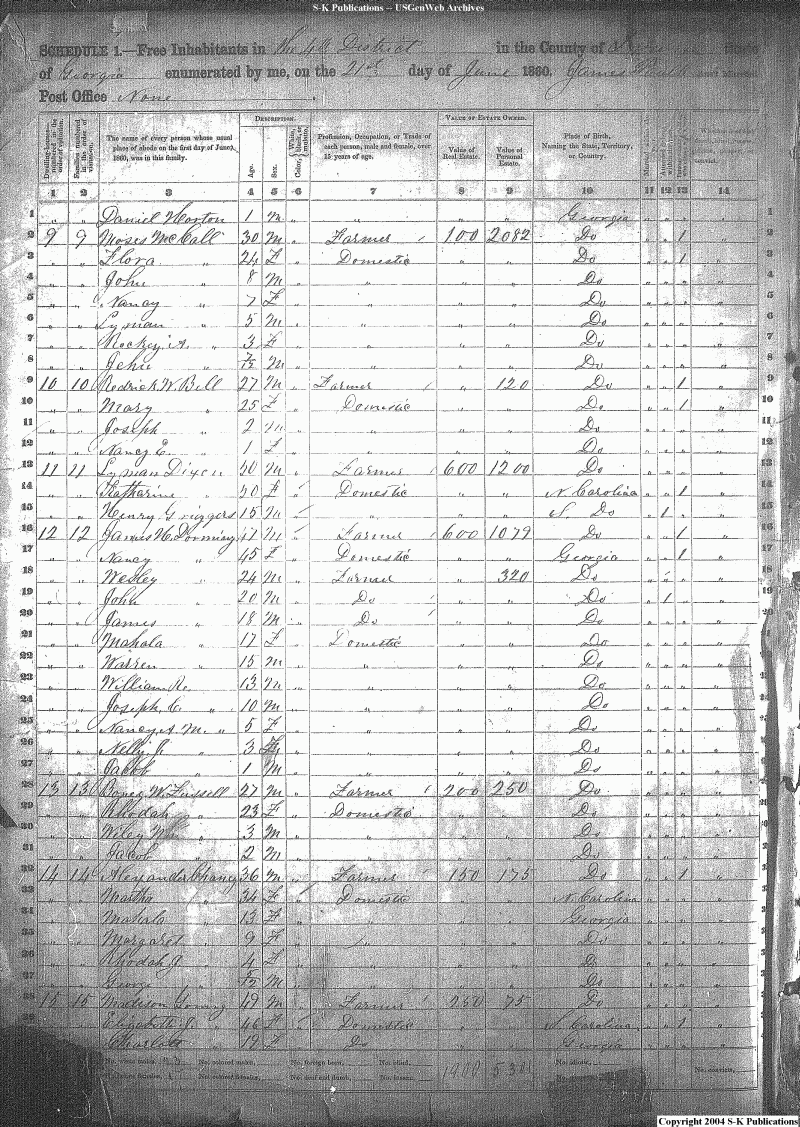 S-K Publications -- USGenWeb Archives
SCHEDULE 1.—Free Inhabitants in District in the County of State
of Georgia enumerated by me, on the 21st day of June 1860. James
Post Office None
DESCRIPTION. VALUE OF ESTATE OWNED.
Dwelling-houses numbered in the order of visitation. Families numbered in the order of visitation. The name of every person whose usual place of abode on the first day of June, 1860, was in this family. Age. Sex. Color, White, black, or mulatto. Profession, Occupation, or Trade of each person, male and female, over 15 years of age. Value of Real Estate. Value of Personal Estate. Place of Birth, Naming the State, Territory, or Country.
1 2 3 4 5 6 7 8 9 10 11 12 13 14
1 " " Daniel Horton 1 m " " " " Georgia 1
2 9 9 Moses McCall 30 m " Farmer 100 2082 Do 1 2
3 " " Flora " 24 F " Domestic " " Do 1 3
4 " " John " 8 m " " " " Do 4
5 " " Nancy " 7 F " " " " Do 5
6 " " Lyman " 5 m " " " " Do 6
7 " " A. " 3 F " " " " Do 7
8 " " " 7/12 m " " " " Do 8
9 10 10 Redrick W. Bell 27 m " Farmer " 120 Do 1 9
10 " " Mary " 25 F " Domestic " " Do 1 10
11 " " Joseph " 2 m " " " " Do 11
12 " " Nancy E. " 1 F " " " " Do 12
13 11 11 Lyman Dixon 40 m " Farmer 600 1200 Do 13
14 " " Katharine " 40 F Domestic " " N. Carolina 1 14
15 " " Henry Griggers 15 m " " " S. Do 1 15
16 12 12 James H. Dorminy 47 m Farmer 600 1079 Do 1 16
17 " " Nancy " 45 F " Domestic " " Georgia 1 17
18 " " Wesley " 24 m " Farmer " 320 Do 18
19 " " John " 20 m " Do " " Do 1 19
20 " " James " 18 m " Do " " Do 20
21 " " Mahala " 17 F " Domestic " " Do
22 " " Warren " 15 m " " " " Do 22
23 " " William R. 13 m " " " " Do 23
24 " " Joseph C. " 10 m " " " " Do 24
25 " " Nancy A. M. " 5 F " " " " Do 25
26 " " Nelly J. " 3 F " " " " Do 26
27 " " Jacob " 1 m " " " " Do 27
28 13 13 W. Fussell 27 m " Farmer 200 250 Do 28
29 " " Rhodah " 23 F " Domestic " " Do 29
30 " " Wiley " 3 m " " " " Do 30
31 " " Jacob " 2 m " " " " Do 31
32 14 14 Alexander Chaney 36 m " Farmer 150 175 Do 1
33 " " Martha " 34 F Domestic " " N. Carolina
34 " " Mahala " 13 F " " " " Georgia
35 " " Margaret " 9 F " " " " Do
36 " " Rhodah J. " 4 F " " " " Do
37 " " George " m " " " " Do
38 15 15 Madison 49 m " Farmer 250 75 Do
39 " " Elizabeth J. " 46 F Domestic " " S. Carolina 1
" " Charlott " 19 F " Do " " Georgia
No. white males, No. colored males, No. foreign born, No. blind, No. idiotic,
No. white females, No. colored females, No. deaf and dumb, No. insane, No. convicts,
1900
Copyright 2004 S-K Publications